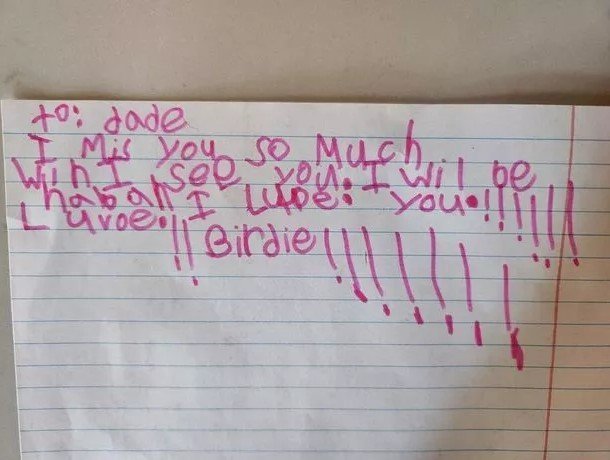 to: dade
I Mis you so Much
Win I see you. I wil be
habah I Luve. you.!!!!!!
Luvoe.!! Birdie!!!!!!!!